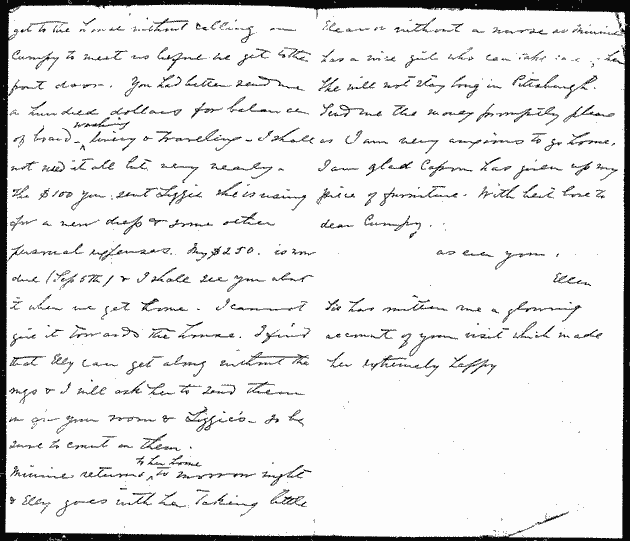 get to the house without calling on
Cumpy to meet us before we get to the
front door. You had better send me
a hundred dollars for balance
of board washing, livery & travelling - I shall
not need it all but very nearly.
The $100 you sent Lizzie she is using
for a new dress & some other
personal expenses. My $250. is now
due (Sep 5th) & I shall see you about
it when we get home. I cannot
give it towards the house. I find
that Elly can get along without the
rugs & I will ask her to send them
on for your room & Lizzie's - so be
sure to count on them.
Minnie returns to her home to morrow night
& Elly goes with her taking little
Eleanor without a nurse as Minnie
has a nice girl who can take care of her
She will not stay long in Pittsburgh.
Send me the money promptly please
as I am very anxious to go home.
I am glad Capron has given up my
piece of furniture. With best love to
dear Cumpy.
as ever yours,
Ellen
Sis has written me a glowing
account of your visit which made
her extremely happy